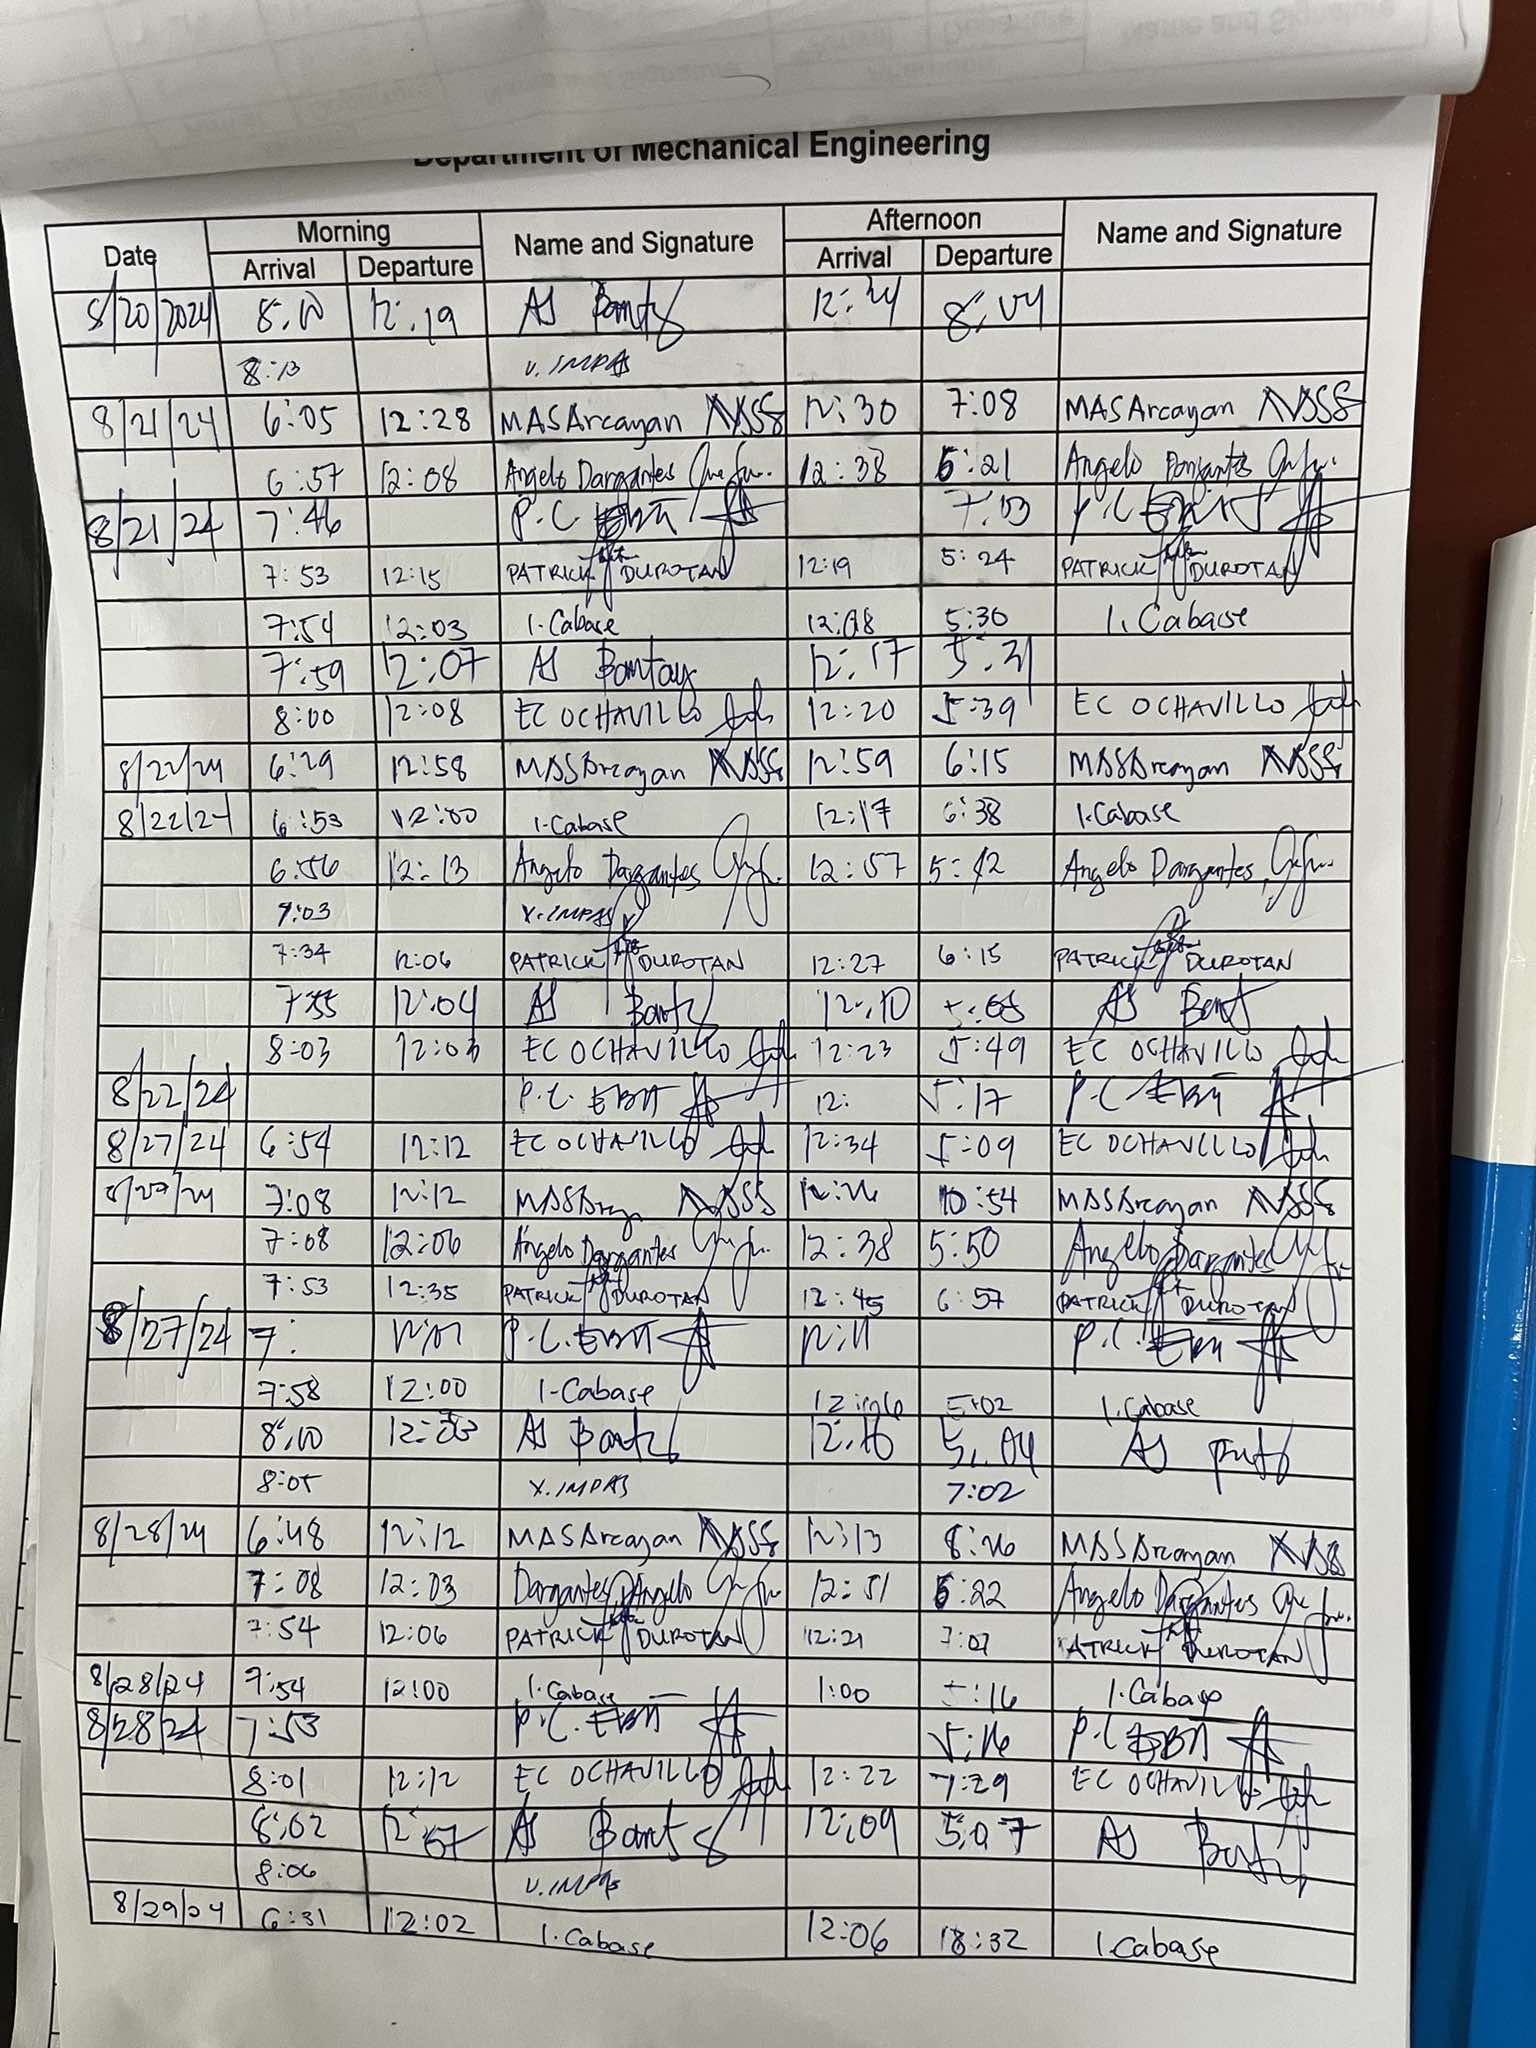 Department of Mechanical Engineering
Date Morning Name and Signature Afternoon Name and Signature
Arrival Departure Arrival Departure
8/20/2024 8:10 12:19 AS 12:24 8:04
8:13 V. IMPAS
8/21/24 6:05 12:28 MASArcayan 12:30 7:08 MASArcayan
6:57 12:08 Angelo Dargantes 12:38 5:21 Angelo Dargantes
8/21/24 7:46 P.C. 7:03 P.C.
7:53 12:15 PATRICK DUROTAN 12:19 5:24 PATRICK DUROTAN
7:54 12:03 I. Cabase 12:08 5:30 I. Cabase
7:59 12:07 AS Bantay 12:17 5:31
8:00 12:08 EC OCHAVILLO 12:20 5:39 EC OCHAVILLO
8/22/24 6:29 12:58 MASArcayan 12:59 6:15 MASArcayan
8/22/24 6:53 12:00 I. Cabase 12:17 6:38 I. Cabase
6:56 12:13 Angelo Dargantes 12:57 5:42 Angelo Dargantes
7:03 V. IMPAS
7:34 12:06 PATRICK DUROTAN 12:27 6:15 PATRICK DUROTAN
7:55 12:04 AS 12:10 5:05 AS
8:03 12:03 EC OCHAVILLO 12:23 5:49 EC OCHAVILLO
8/22/24 P.C. 12: 5:17 P.C.
8/27/24 6:54 12:12 EC OCHAVILLO 12:34 5:09 EC OCHAVILLO
8/27/24 7:08 12:12 12:26 10:54 MASArcayan
7:08 12:06 Angelo Dargantes 12:38 5:50 Angelo Dargantes
7:53 12:35 PATRICK DUROTAN 12:45 6:57 PATRICK DUROTAN
8/27/24 7: P.C. 12:11 P.C.
7:58 12:00 I. Cabase 5:02 I. Cabase
8:10 12:03 AS 12:10 5:04 AS
8:05 V. IMPAS 7:02
8/28/24 6:48 12:12 MASArcayan 12:13 8:26 MASArcayan
7:08 12:03 Dargantes, Angelo 12:51 5:22 Angelo Dargantes
7:54 12:06 PATRICK DUROTAN 12:21 7:07 PATRICK DUROTAN
8/28/24 7:54 12:00 I. Cabase 1:00 5:16 I. Cabase
8/28/24 7:53 P.C. 5:16 P.C.
8:01 12:12 EC OCHAVILLO 12:22 7:29 EC OCHAVILLO
8:02 12:07 AS 12:09 5:07 AS
8:06 V. IMPAS
8/29/24 6:31 12:02 I. Cabase 12:06 18:32 I. Cabase